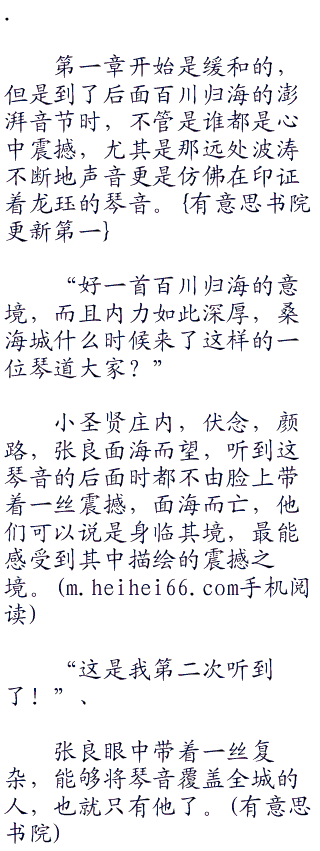 .
第一章开始是缓和的，
但是到了后面百川归海的澎
湃音节时，不管是谁都是心
中震撼，尤其是那远处波涛
不断地声音更是仿佛在印证
着龙珏的琴音。{有意思书院
更新第一}
“好一首百川归海的意
境，而且内力如此深厚，桑
海城什么时候来了这样的一
位琴道大家？”
小圣贤庄内，伏念，颜
路，张良面海而望，听到这
琴音的后面时都不由脸上带
着一丝震撼，面海而亡，他
们可以说是身临其境，最能
感受到其中描绘的震撼之
境。(m.heihei66.com手机阅
读)
“这是我第二次听到
了！”、
张良眼中带着一丝复
杂，能够将琴音覆盖全城的
人，也就只有他了。(有意思
书院)